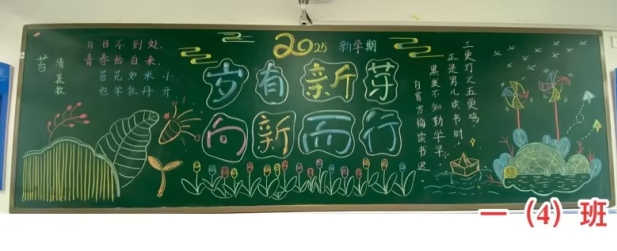 苔
清 袁枚
白日不到处,
青春恰自来.
苔花如米小
也学牡丹开
2025 新学期
岁有新芽
向新而行
三更灯火五更鸡
正是男儿读书时
黑发不知勤学早
白首方悔读书迟
一（4）班